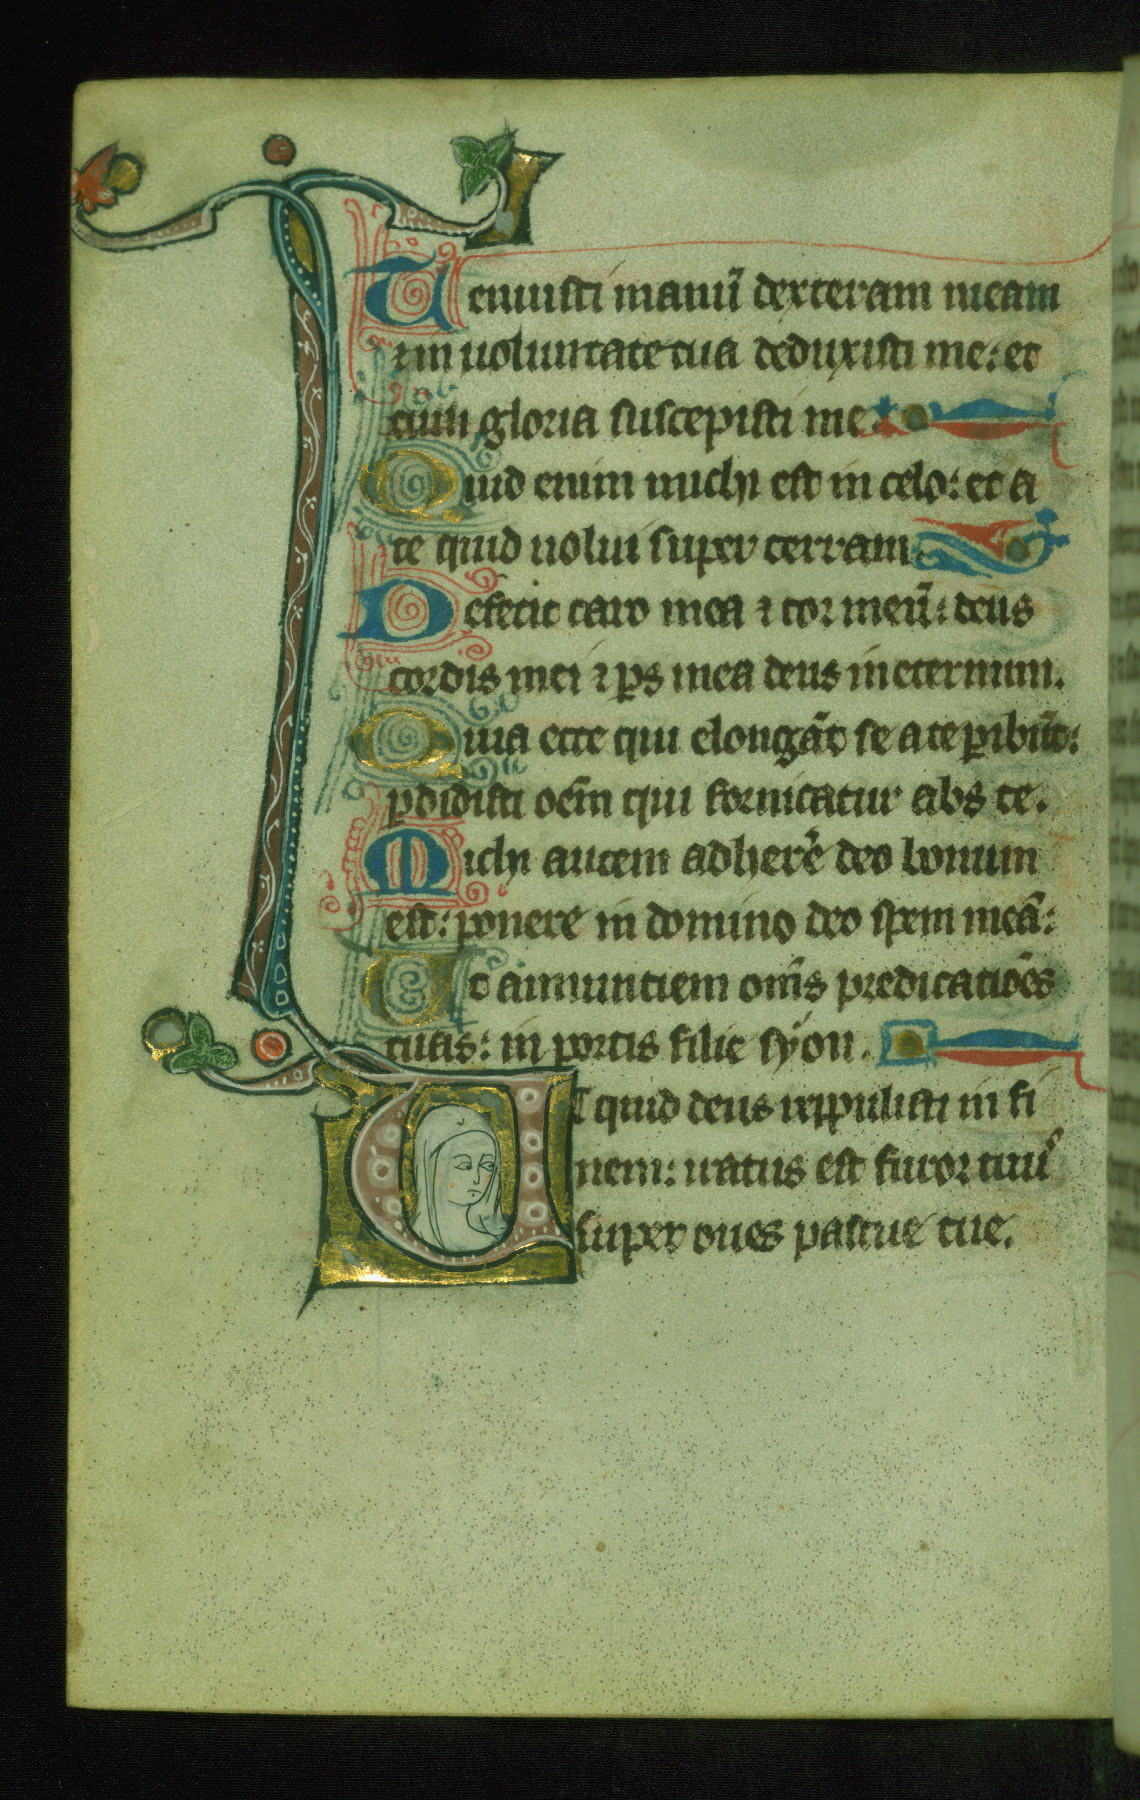 Tenuisti manū dexteram meam
⁊ in uoluntate tua deduxisti me: et
cum gloria suscepisti me.
Quid enim michi est in celo: et a
te quid uolui super terram.
Defecit caro mea ⁊ cor meū: deus
cordis mei ⁊ ꝑs mea deus in eternum.
Quia ecce qui elongāt se a te ꝑibūt:
ꝑdidisti oēm qui fornicatur abs te.
Michi autem adherē deo bonum
est: ponere in domino deo spem meā:
Et annuntiem om̄s predicatiōes
tuas: in portis filie syon.
Vt quid deus reppulisti in fi
nem: iratus est furor tuus
super oues pascue tue.